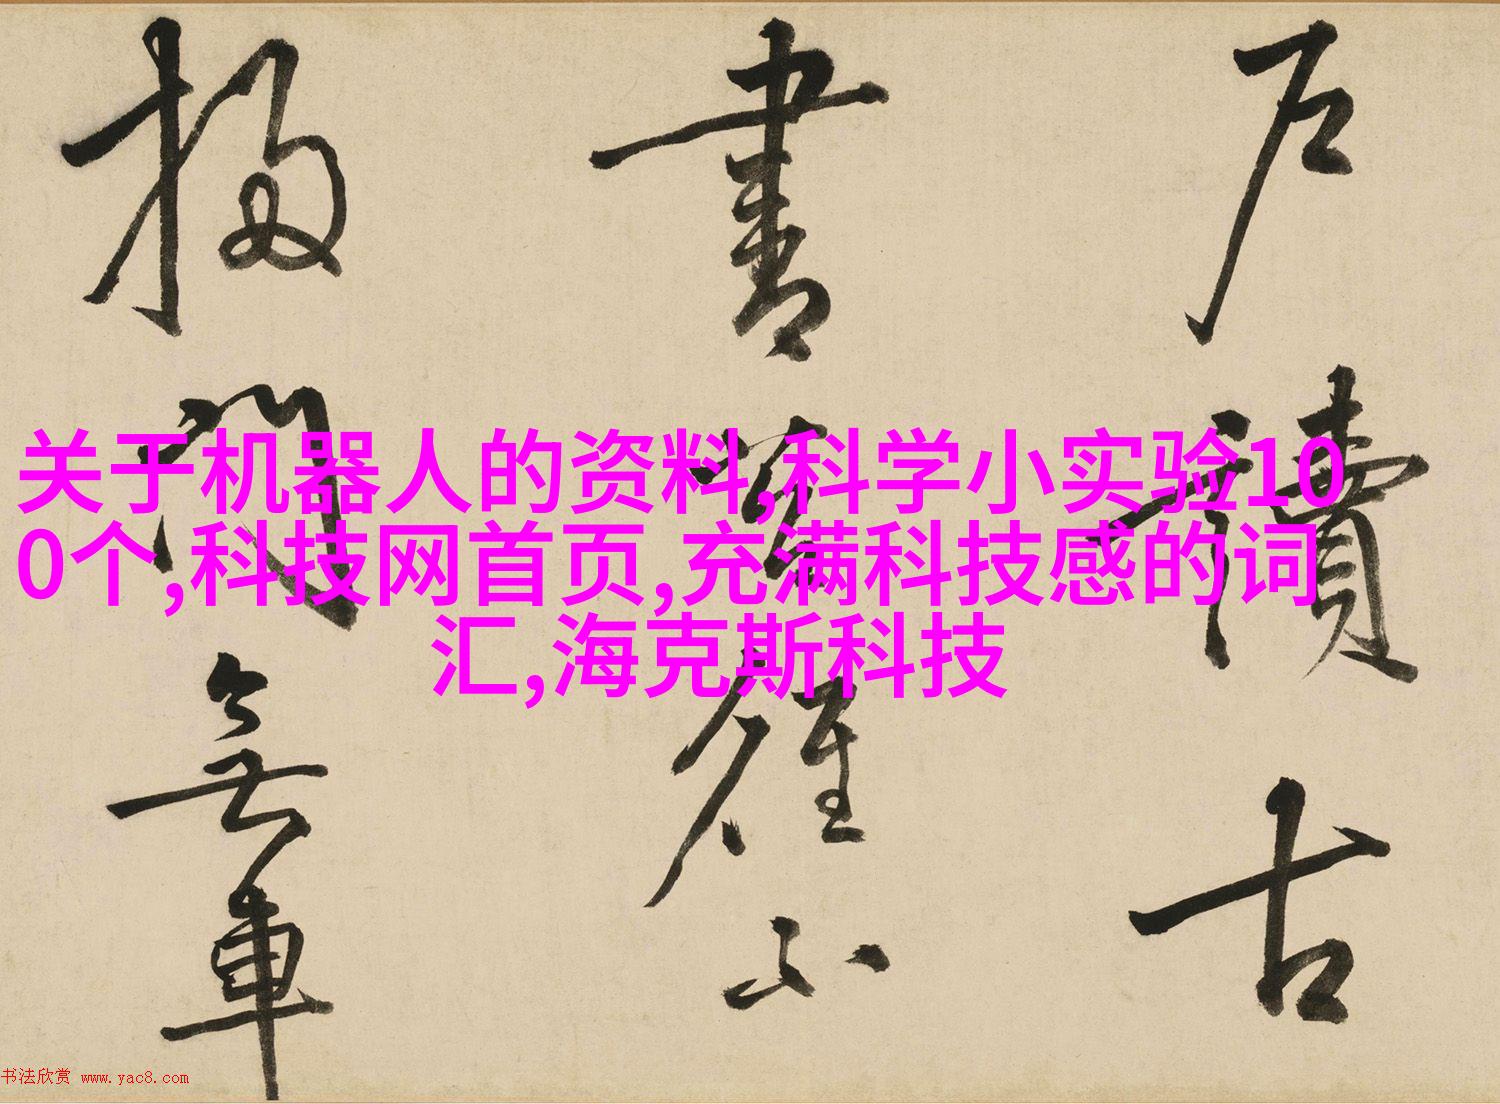 关于机器人的资料,科学小实验10
0个,科技网首页,充满科技感的词
汇,海克斯科技
戶讀古
書不
掃門無車
书法欣赏 www.yac8.com